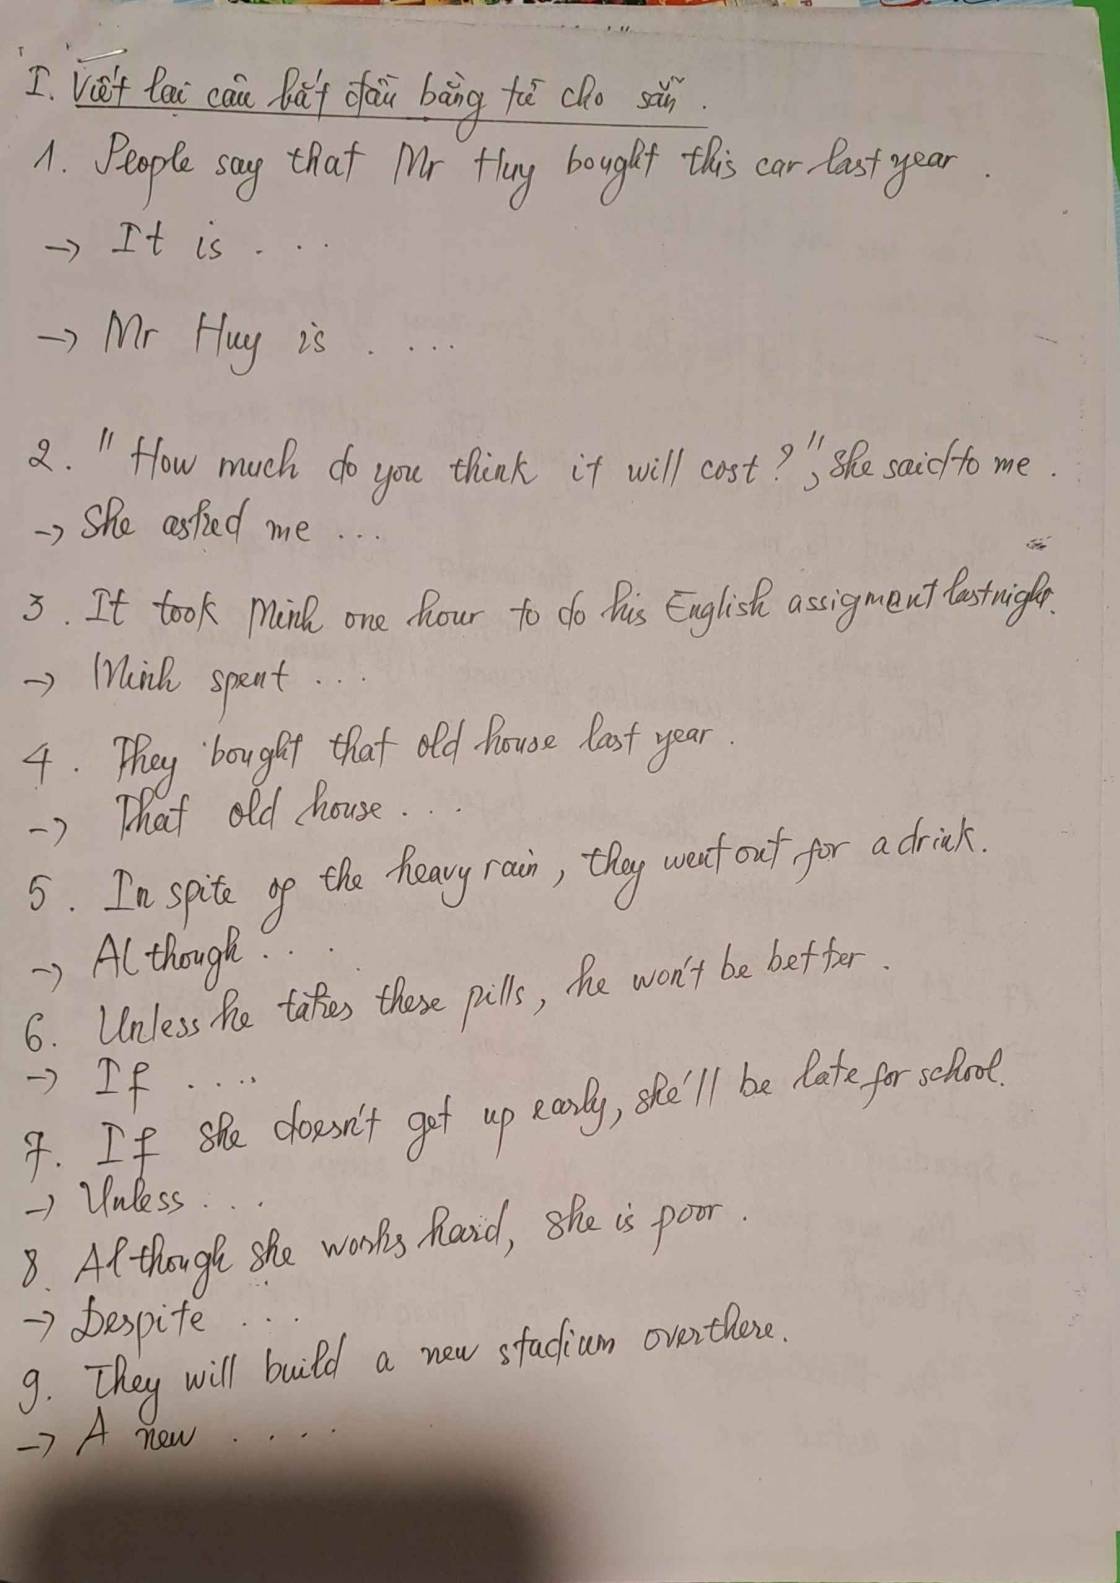 I. Viết lại câu bắt đầu bằng từ cho sẵn.
1. People say that Mr Huy bought this car last year.
→ It is ....
→ Mr Huy is ....
2. "How much do you think it will cost?", she said to me.
→ She asked me ...
3. It took Minh one hour to do his English assigment last night.
→ Minh spent ...
4. They bought that old house last year.
→ That old house ...
5. In spite of the heavy rain, they went out for a drink.
→ Although ...
6. Unless he takes these pills, he won't be better.
→ If ....
7. If she doesn't get up early, she'll be late for school.
→ Unless ...
8. Although she works hard, she is poor.
→ Despite ...
9. They will build a new stadium over there.
→ A new ....